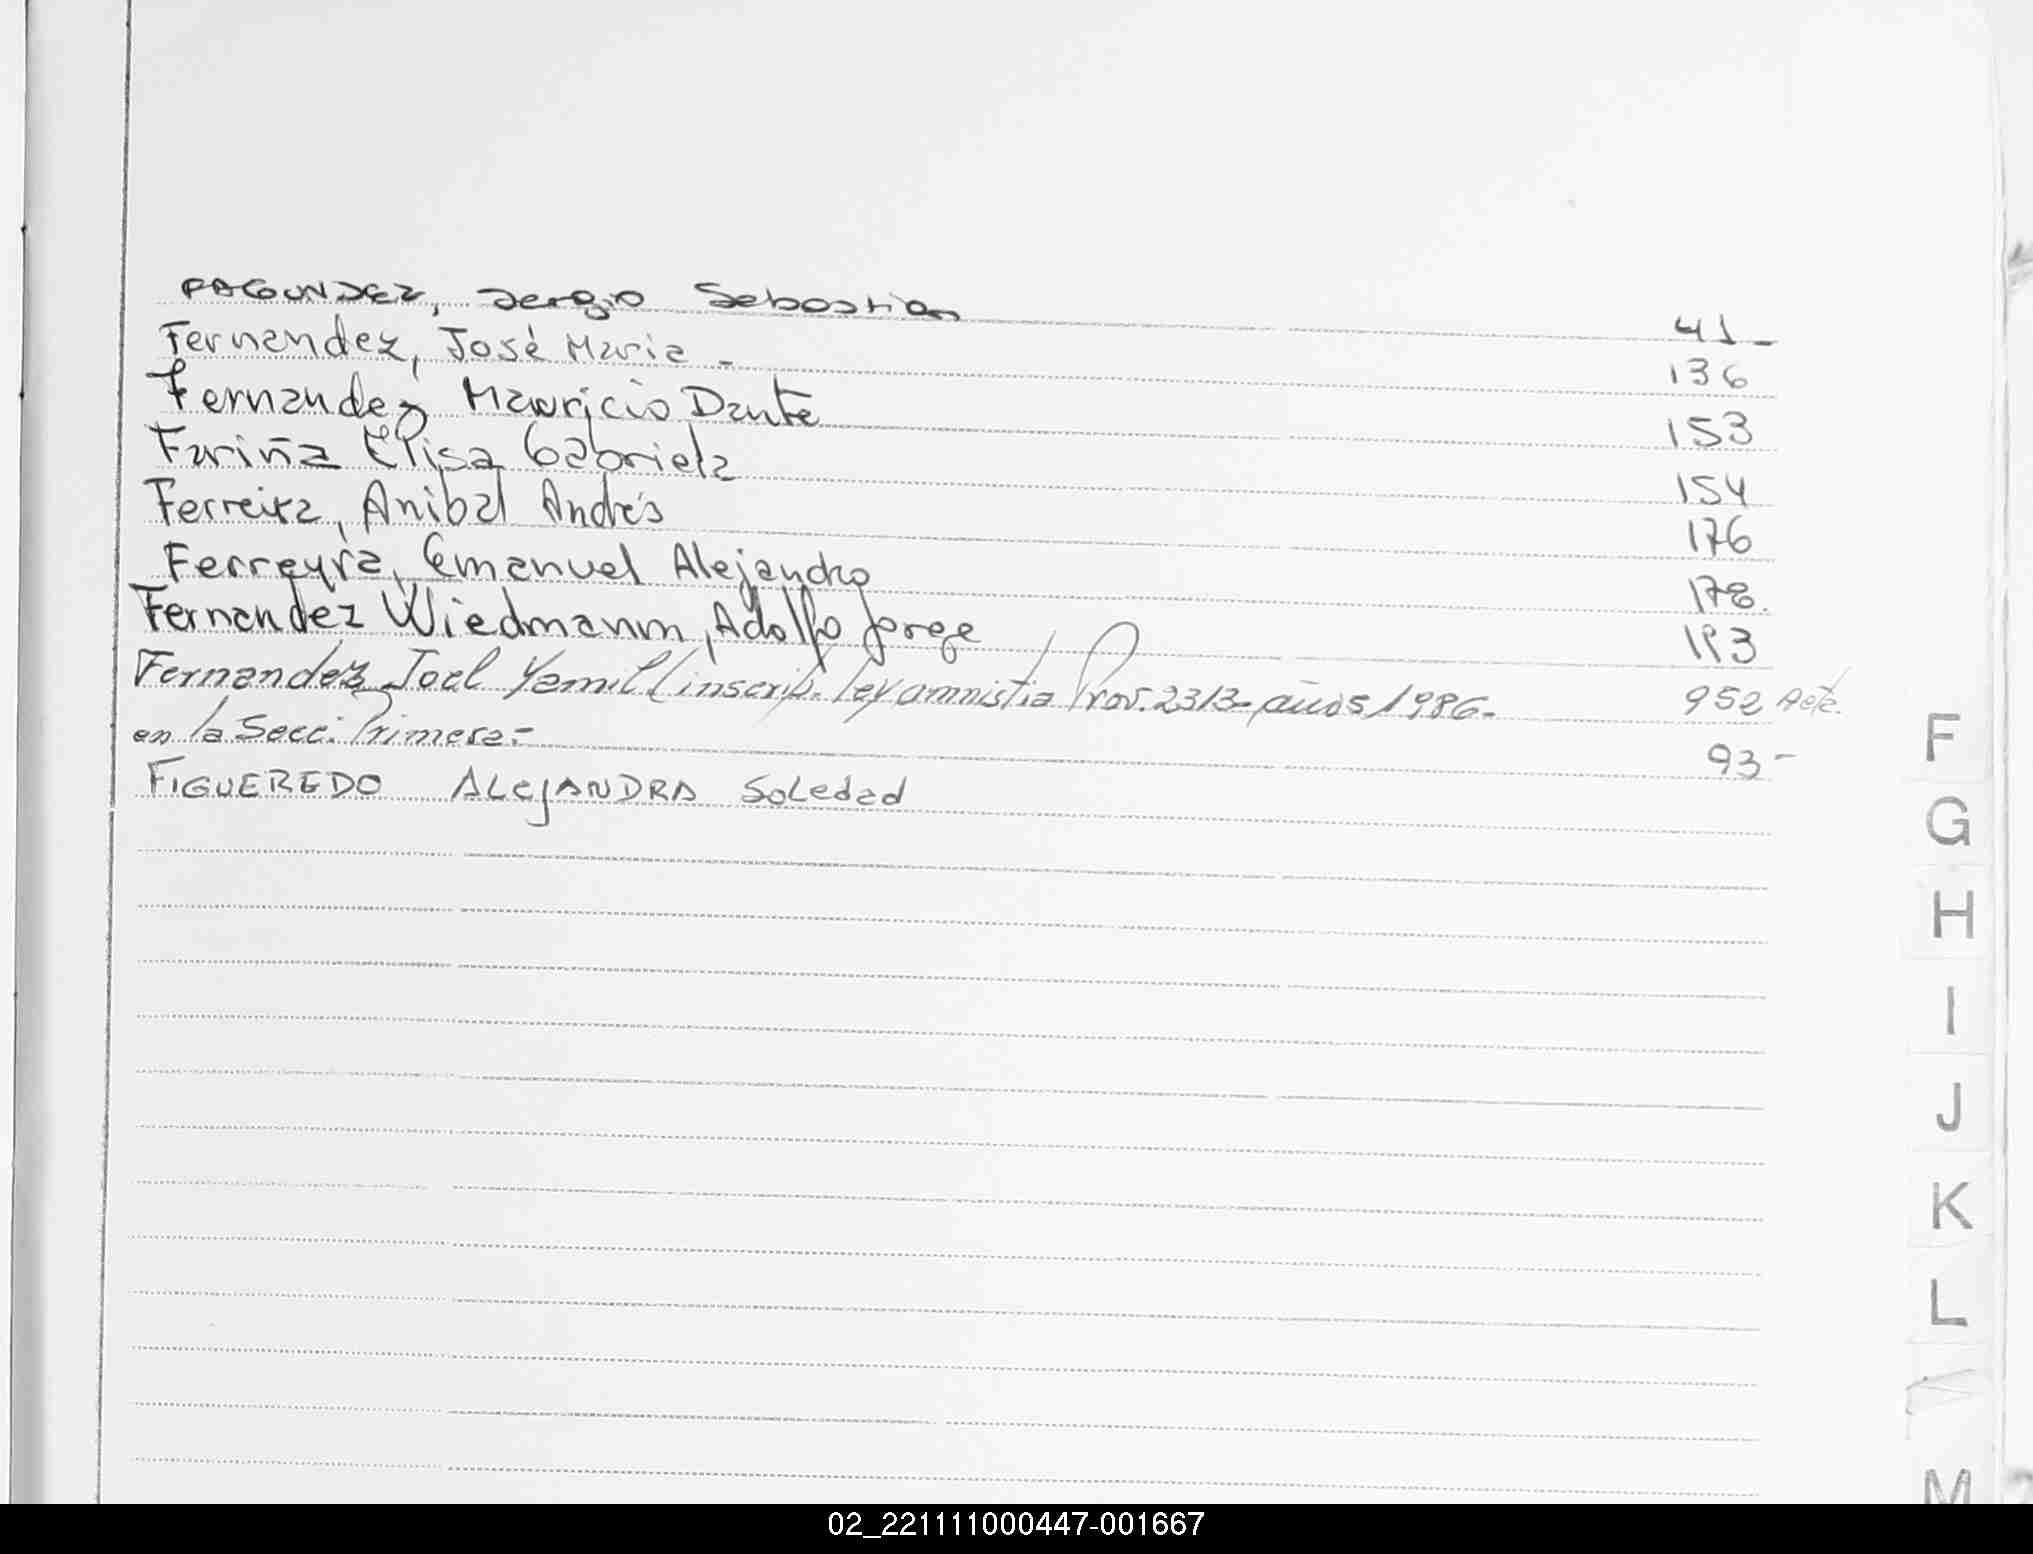 FAGUNDEZ, Sergio Sebastian 41-
Fernandez, José Maria - 136
Fernandez Mauricio Dante 153
Fariña Elisa Gabriela 154
Ferreira, Anibal Andrés 176
Ferreyra, Emanuel Alejandro 178.
Fernandez Wiedmann, Adolfo Jorge 193
Fernandez Joel Yamil (inscrip. ley amnistia Prov. 2313- años 1986- 952 Acta.
en la Secc. Primera-
FIGUEREDO ALEJANDRA Soledad 93-
F
G
H
I
J
K
L
M
02_221111000447-001667